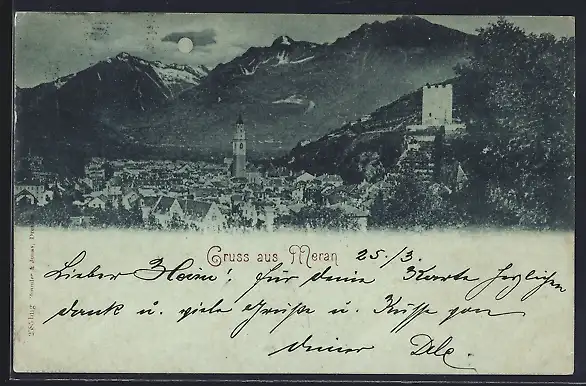 Gruss aus Meran 25./3.
Lieber Heini! für deine Karte herzlichen
dank u. viele Grüße u. Küsse von
deiner